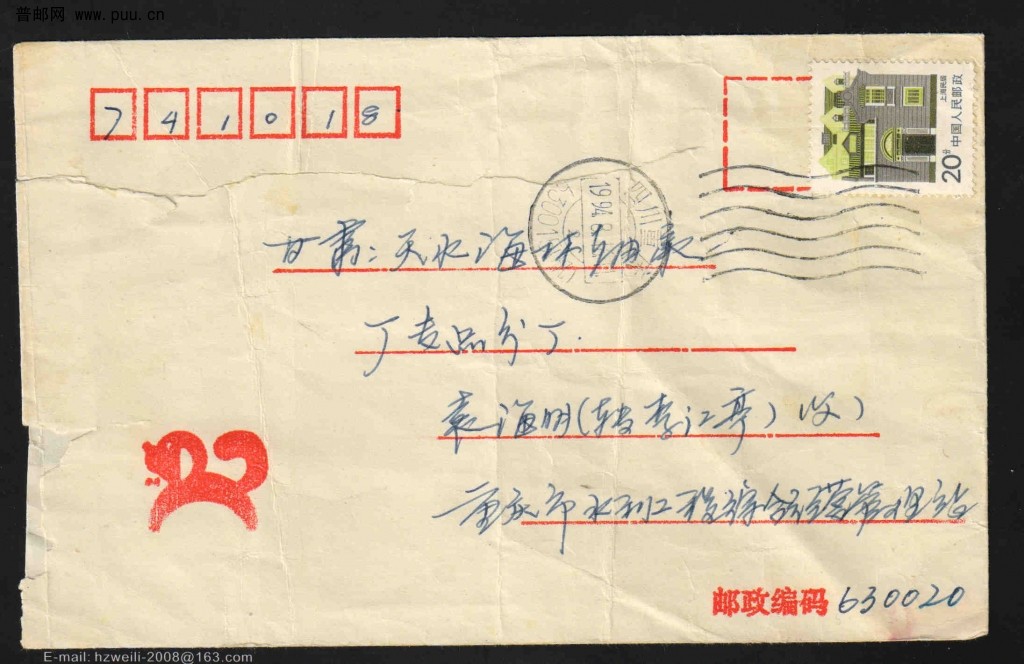 普邮网 www.puu.cn
741018
上海民居
中国人民邮政
20分
四川重庆
1994.8
630010
甘肃:天水海林轴承
厂专品分厂.
袁海明(转李江亭)收
重庆市水利工程综合经营管理站
邮政编码 630020
E-mail: hzweili-2008@163.com